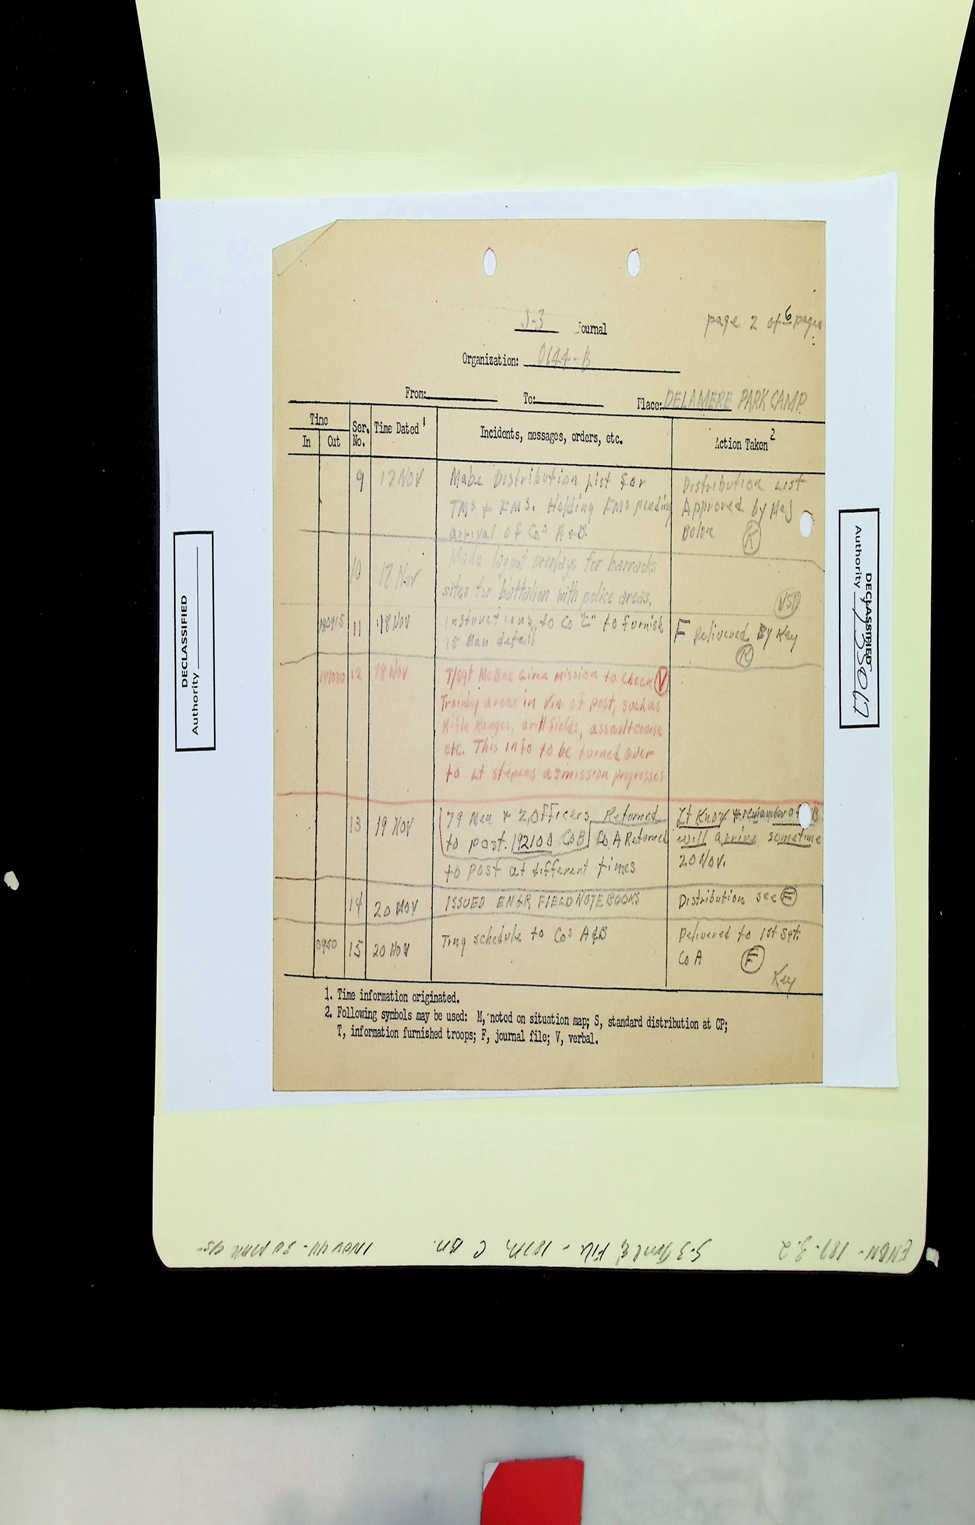 S-3 Journal
page 2 of 6 pages
Organization: 0644-B
From: To: Place: DELAMERE PARK CAMP
Time
In Out
Ser. No.
Time Dated 1
Incidents, messages, orders, etc.
Action Taken 2
9 17 NOV Make Distribution List for
TMs & FMs. Holding FMs pending
arrival of Cos A & B.
Distribution List
Approved by Maj
(K)
10 17 Nov Made layout overlays for barracks
sites for battalion with police areas.
180915 11 18 Nov Instructions, to Co "C" to furnish
15 Man detail
F Delivered By Key
(K)
181030 12 18 Nov T/Sgt McBee Given mission to check (V)
Training areas in Vin. of post, such as
Rifle Ranges, drill fields, assault course
etc. This info to be turned over
to Lt as mission progresses
13 19 NOV (79 Men & 2 Officers Returned
to post. 192100 CoB) Co A Returned
to post at different times
Lt Knox & remainder of B
will arrive sometime
20 Nov.
14 20 NOV ISSUED ENGR FIELD NOTE BOOKS
Distribution see (F)
0950 15 20 Nov Trng schedule to Cos A&B
Delivered to 1st Sgt.
Co A (F)
Key
1. Time information originated.
2. Following symbols may be used: M, noted on situation map; S, standard distribution at CP;
T, information furnished troops; F, journal file; V, verbal.
DECLASSIFIED
Authority
DECLASSIFIED
Authority
ENBN - 187 - 3.2
S-3 Jnl & File - 187th C Bn.
1 Nov 44 - 30 Mar 45